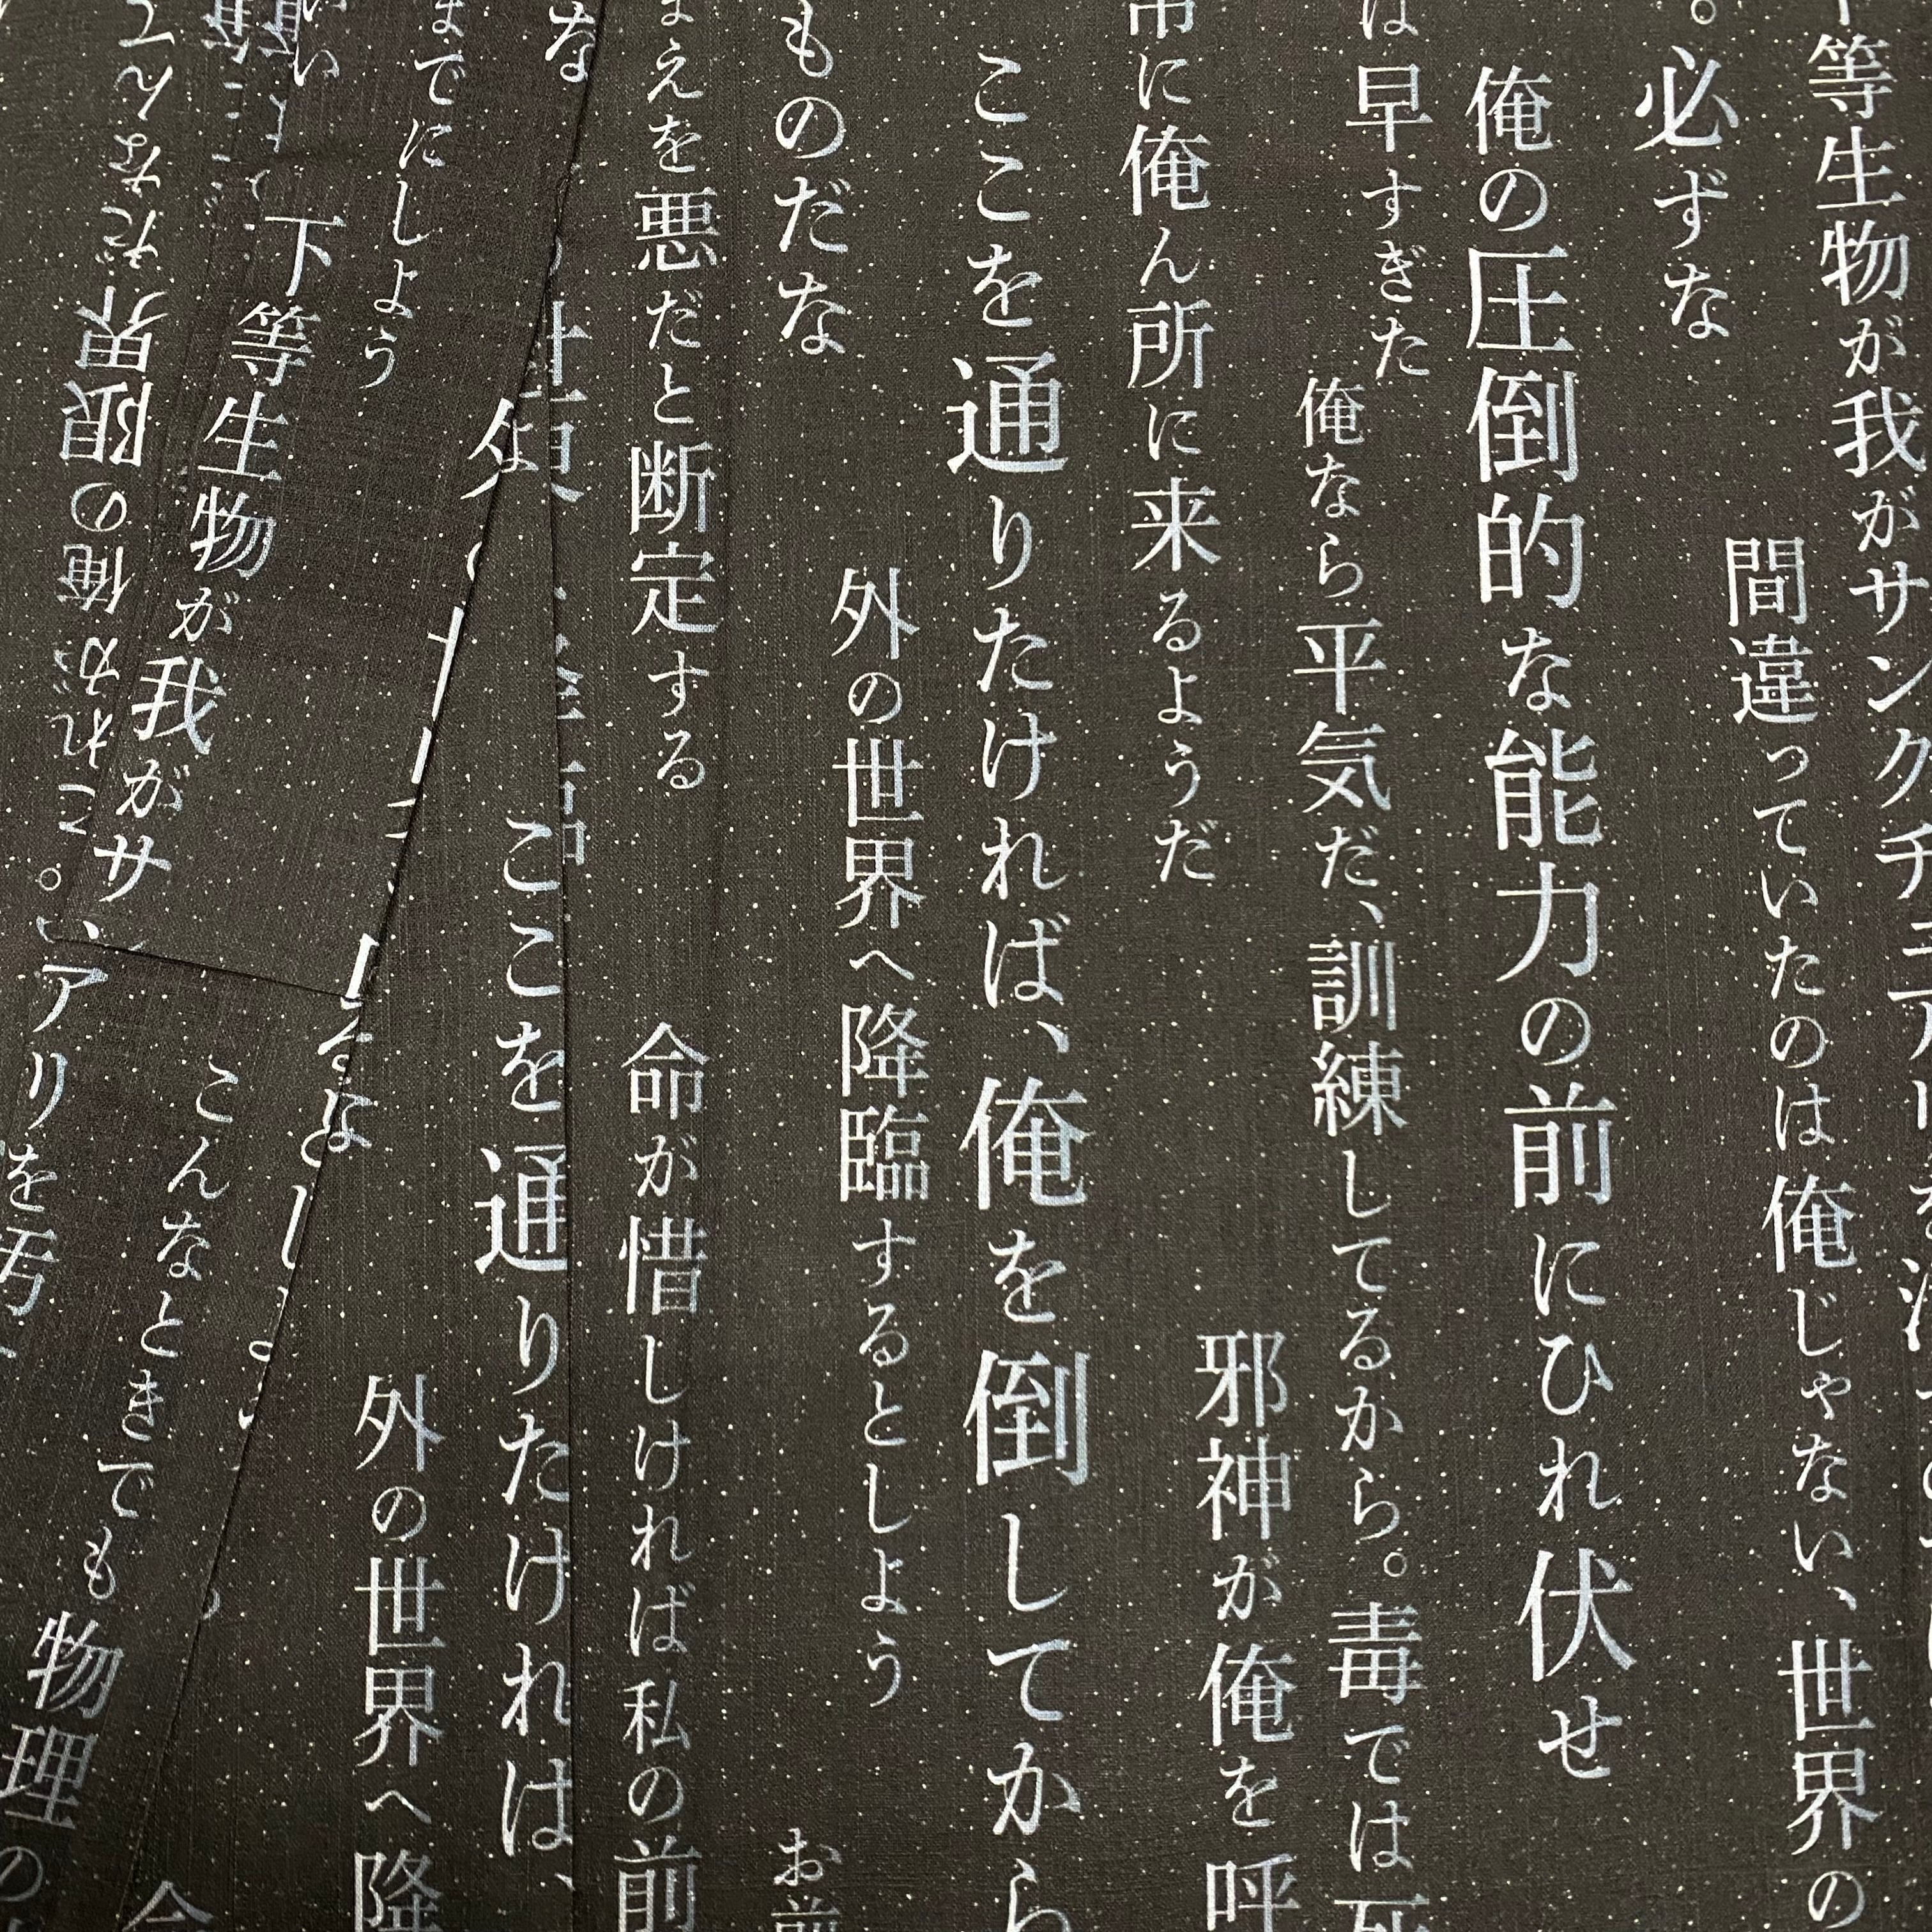 等生物が我がサンクチュアリを汚
間違っていたのは俺じゃない、世界の
。必ずな
俺の圧倒的な能力の前にひれ伏せ
は早すぎた
俺なら平気だ、訓練してるから。毒では死
常に俺ん所に来るようだ
邪神が俺を呼
ここを通りたければ、俺を倒してから
ものだな
外の世界へ降臨するとしよう
お前
まえを悪だと断定する
命が惜しければ私の前
な
ここを通りたければ、
外の世界へ降
までにしよう
下等生物が我がサ
こんなときでも物理の
アリを汚
。これが俺の限界だなんて